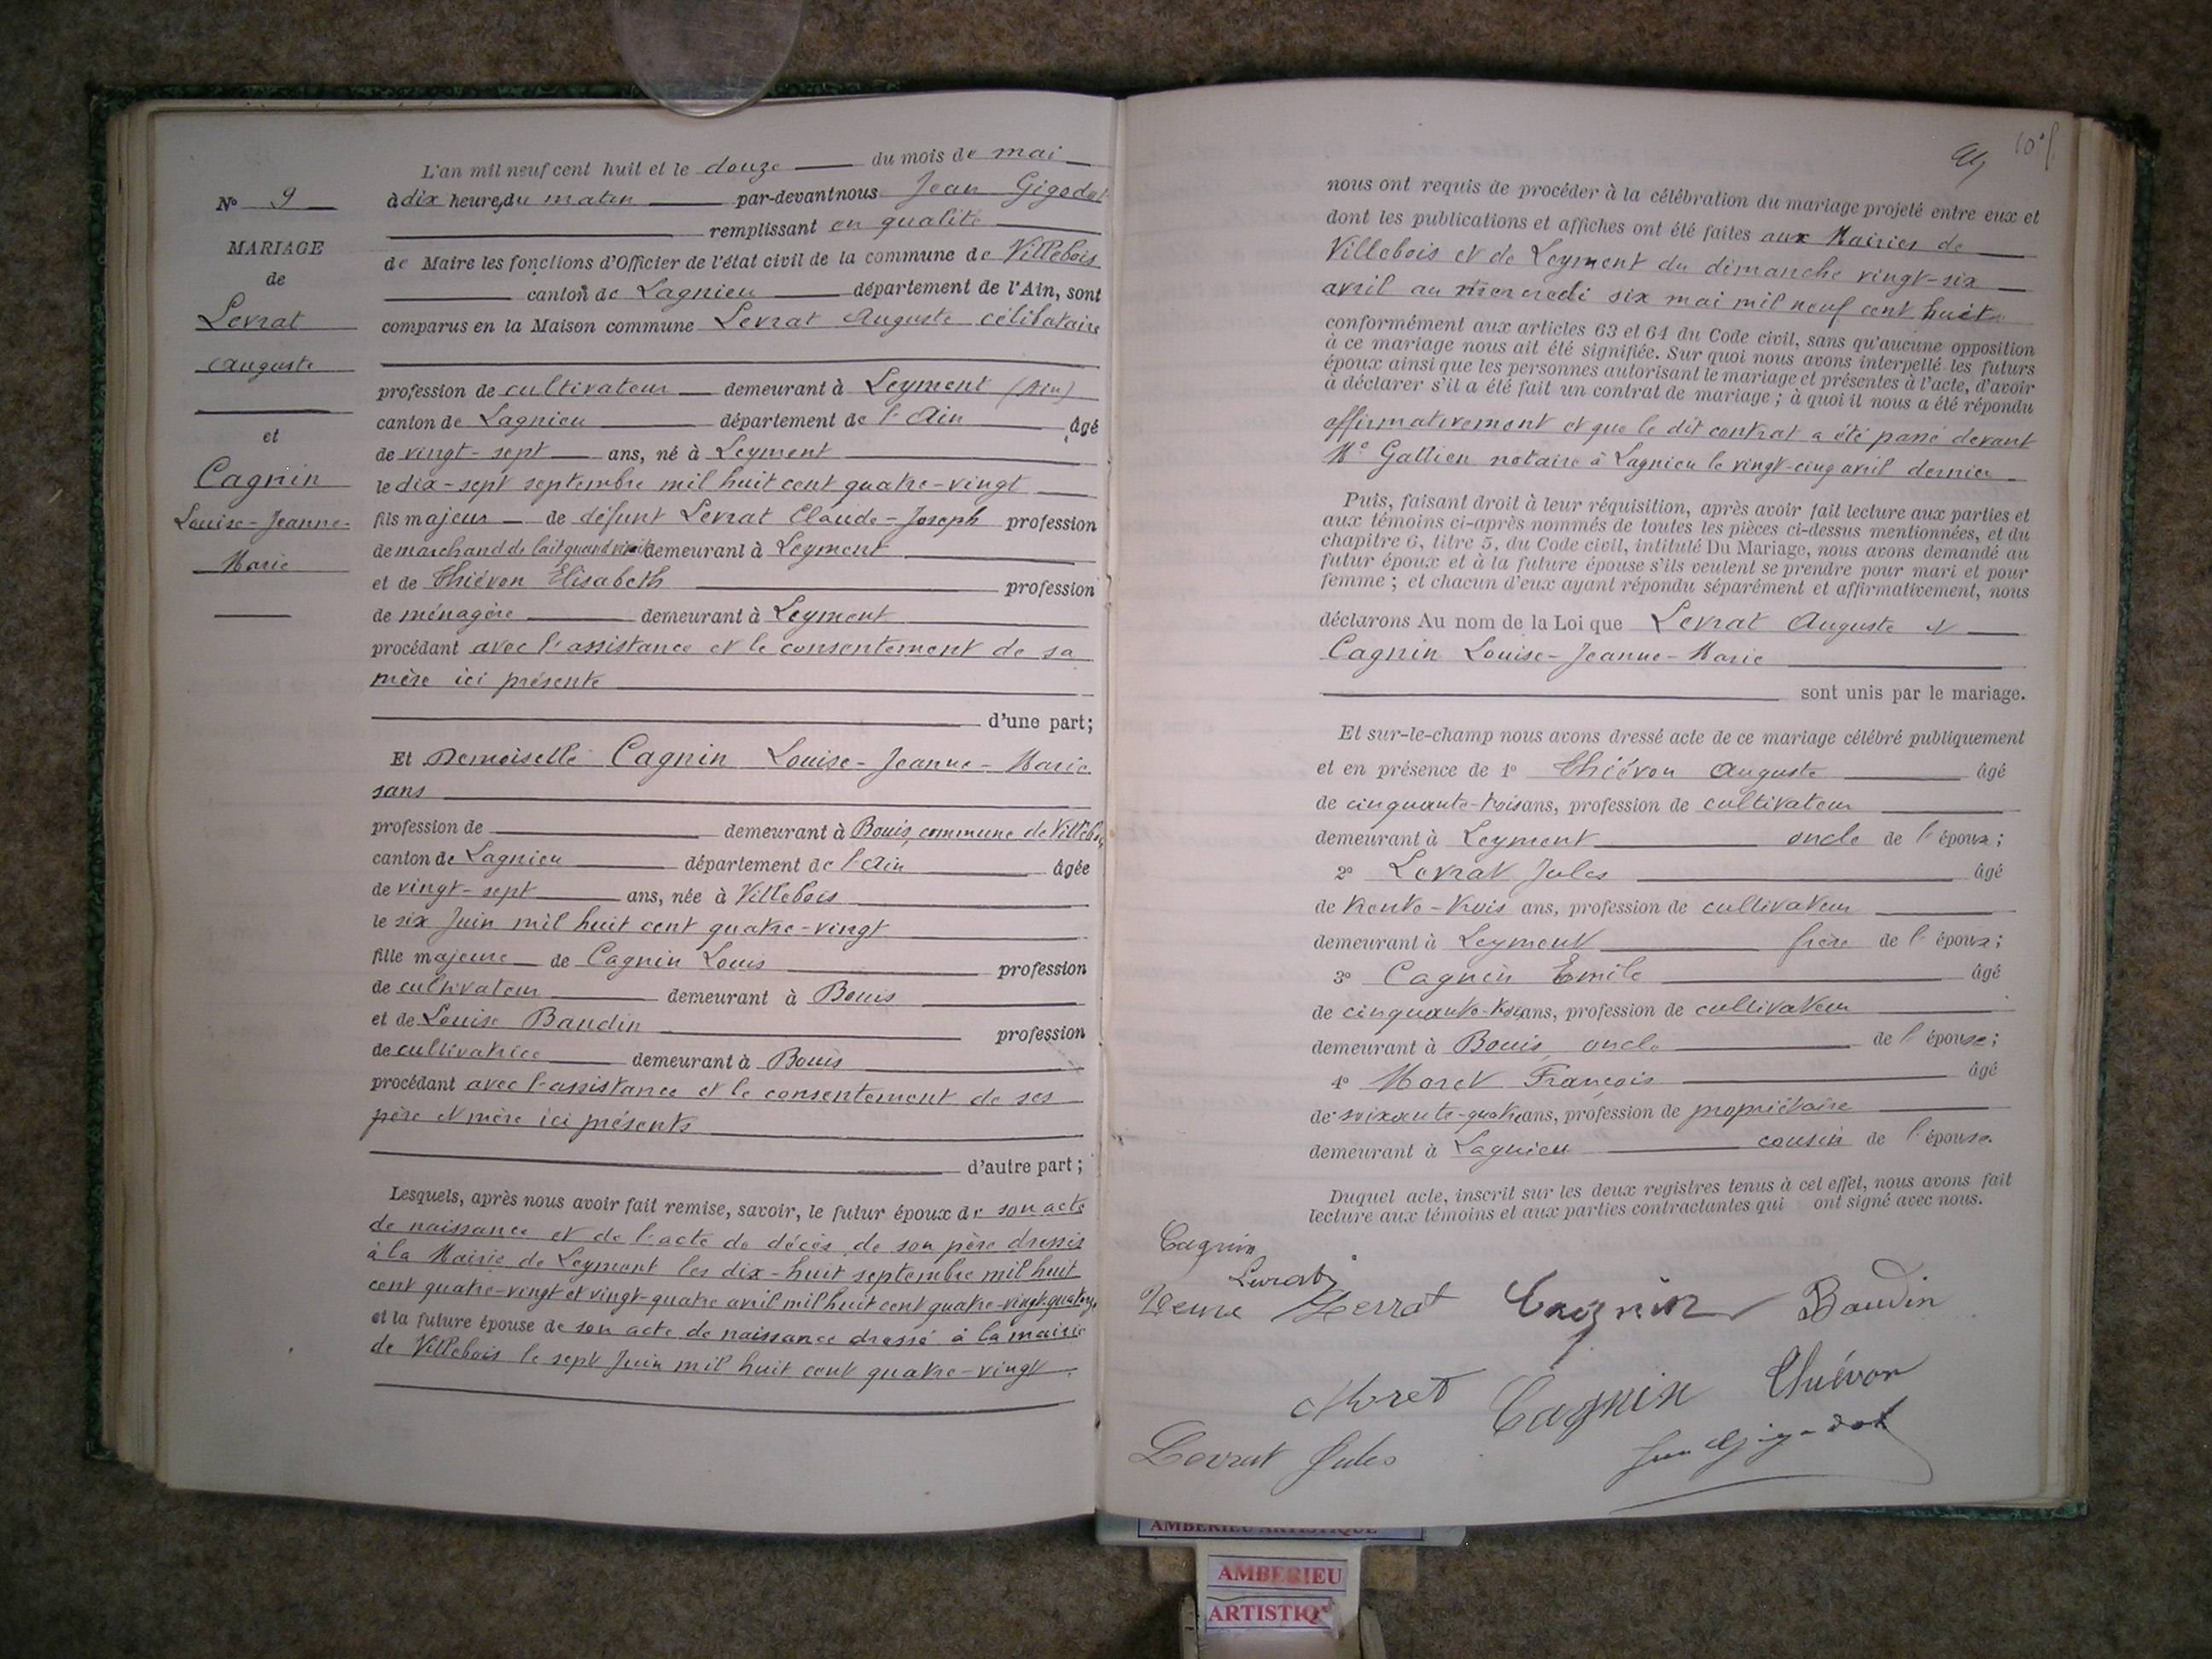 N° 9
MARIAGE
de
Levrat
Auguste
et
Cagnin
Louise-Jeanne-
Marie
L'an mil neuf cent huit et le douze du mois de mai
à dix heures du matin par-devant nous Jean Gigodot
remplissant en qualité
de Maire les fonctions d'Officier de l'état civil de la commune de Villebois
canton de Lagnieu département de l'Ain, sont
comparus en la Maison commune Levrat Auguste célibataire
profession de cultivateur demeurant à Leyment (Ain)
canton de Lagnieu département de l'Ain âgé
de vingt-sept ans, né à Leyment
le dix-sept septembre mil huit cent quatre-vingt
fils majeur de défunt Levrat Claude-Joseph profession
de marchand de lait quand vivait demeurant à Leyment
et de Thiévon Elisabeth profession
de ménagère demeurant à Leyment
procédant avec l'assistance et le consentement de sa
mère ici présente
d'une part;
Et Demoiselle Cagnin Louise-Jeanne-Marie
sans
profession de demeurant à Bouis, commune de Villebois
canton de Lagnieu département de l'Ain âgée
de vingt-sept ans, née à Villebois
le six Juin mil huit cent quatre-vingt
fille majeure de Cagnin Louis profession
de cultivateur demeurant à Bouis
et de Louise Baudin profession
de cultivatrice demeurant à Bouis
procédant avec l'assistance et le consentement de ses
père et mère ici présents
d'autre part;
Lesquels, après nous avoir fait remise, savoir, le futur époux de son acte
de naissance et de l'acte de décès de son père dressés
à la Mairie de Leyment les dix-huit septembre mil huit
cent quatre-vingt et vingt-quatre avril mil huit cent quatre-vingt-quatorze
et la future épouse de son acte de naissance dressé à la mairie
de Villebois le sept Juin mil huit cent quatre-vingt.
nous ont requis de procéder à la célébration du mariage projeté entre eux et
dont les publications et affiches ont été faites aux Mairies de
Villebois et de Leyment du dimanche vingt-six
avril au mercredi six mai mil neuf cent huit
conformément aux articles 63 et 64 du Code civil, sans qu'aucune opposition
à ce mariage nous ait été signifiée. Sur quoi nous avons interpellé les futurs
époux ainsi que les personnes autorisant le mariage et présentes à l'acte, d'avoir
à déclarer s'il a été fait un contrat de mariage; à quoi il nous a été répondu
affirmativement et que le dit contrat a été passé devant
Me Gallien notaire à Lagnieu le vingt-cinq avril dernier
Puis, faisant droit à leur réquisition, après avoir fait lecture aux parties et
aux témoins ci-après nommés de toutes les pièces ci-dessus mentionnées, et du
chapitre 6, titre 5, du Code civil, intitulé Du Mariage, nous avons demandé au
futur époux et à la future épouse s'ils veulent se prendre pour mari et pour
femme; et chacun d'eux ayant répondu séparément et affirmativement, nous
déclarons Au nom de la Loi que Levrat Auguste et
Cagnin Louise-Jeanne-Marie
sont unis par le mariage.
Et sur-le-champ nous avons dressé acte de ce mariage célébré publiquement
et en présence de 1° Thiévon Auguste âgé
de cinquante-trois ans, profession de cultivateur
demeurant à Leyment oncle de l'époux;
2° Levrat Jules âgé
de trente-trois ans, profession de cultivateur
demeurant à Leyment frère de l'époux;
3° Cagnin Emile âgé
de cinquante-trois ans, profession de cultivateur
demeurant à Bouis oncle de l'épouse;
4° Moret François âgé
de soixante-quatre ans, profession de propriétaire
demeurant à Lagnieu cousin de l'épouse.
Duquel acte, inscrit sur les deux registres tenus à cet effet, nous avons fait
lecture aux témoins et aux parties contractantes qui ont signé avec nous.
Cagnin
Levrat
Veuve Levrat Cagnin Baudin
Moret Cagnin Thiévon
Levrat Jules Jean Gigodot
AMBERIEU ARTISTIQUE
AMBERIEU
ARTISTIQ